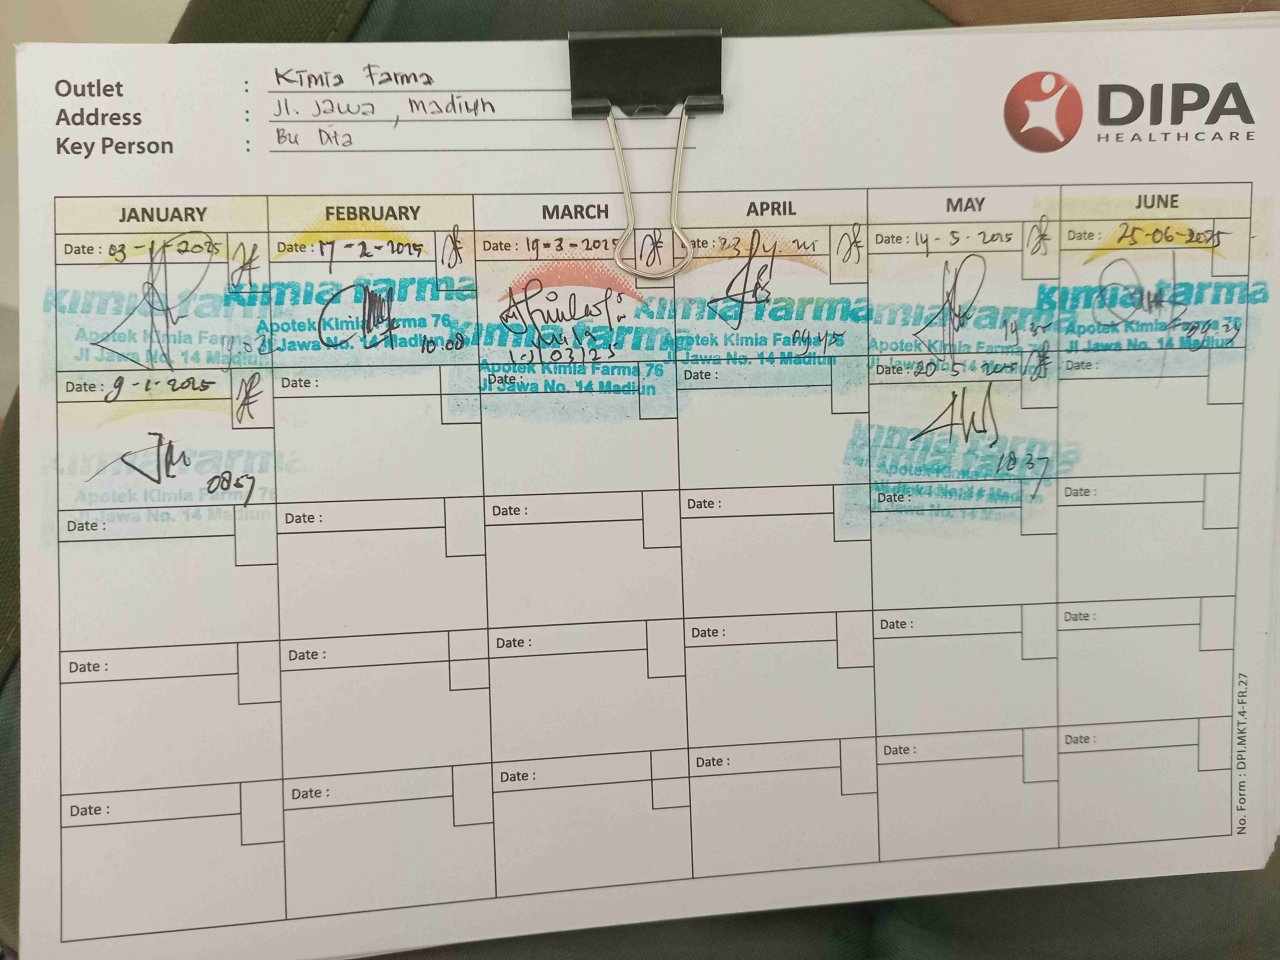 Outlet : Kimia Farma
Address : Jl. Jawa, Madiun
Key Person : Bu Dita
DIPA
HEALTHCARE
JANUARY FEBRUARY MARCH APRIL MAY JUNE
Date : 03-1-2025 Date : 17-2-2025 Date : 19-3-2025 Date : 23 Date : 14-5-2025 Date : 25-06-2025
Kimia farma Kimia farma Kimia farma Kimia farma Kimia farma
Apotek Kimia Farma 76 Apotek Kimia Farma 76 Apotek Kimia Farma Apotek Kimia Farma Apotek Kimia Farma
Jl Jawa No. 14 Madiun Jl Jawa No. 14 Madiun Jl Jawa No. 14 Madiun Jl Jawa No. 14 Madiun Jl Jawa No. 14 Madiun
10.08 0945
Kimia farma
Apotek Kimia Farma 76
Jl Jawa No. 14 Madiun
Date : 9-1-2025 Date : Date : Date : Date : 20-5-2025 Date :
0857 1037
Kimia farma Kimia farma
Apotek Kimia Farma 76 Apotek Kimia Farma
Jl Jawa No. 14 Madiun Jl Jawa No. 14 Madiun
Date : Date : Date : Date : Date : Date :
Date : Date : Date : Date : Date : Date :
Date : Date : Date : Date : Date : Date :
No. Form : DPI.MKT.4-FR.27